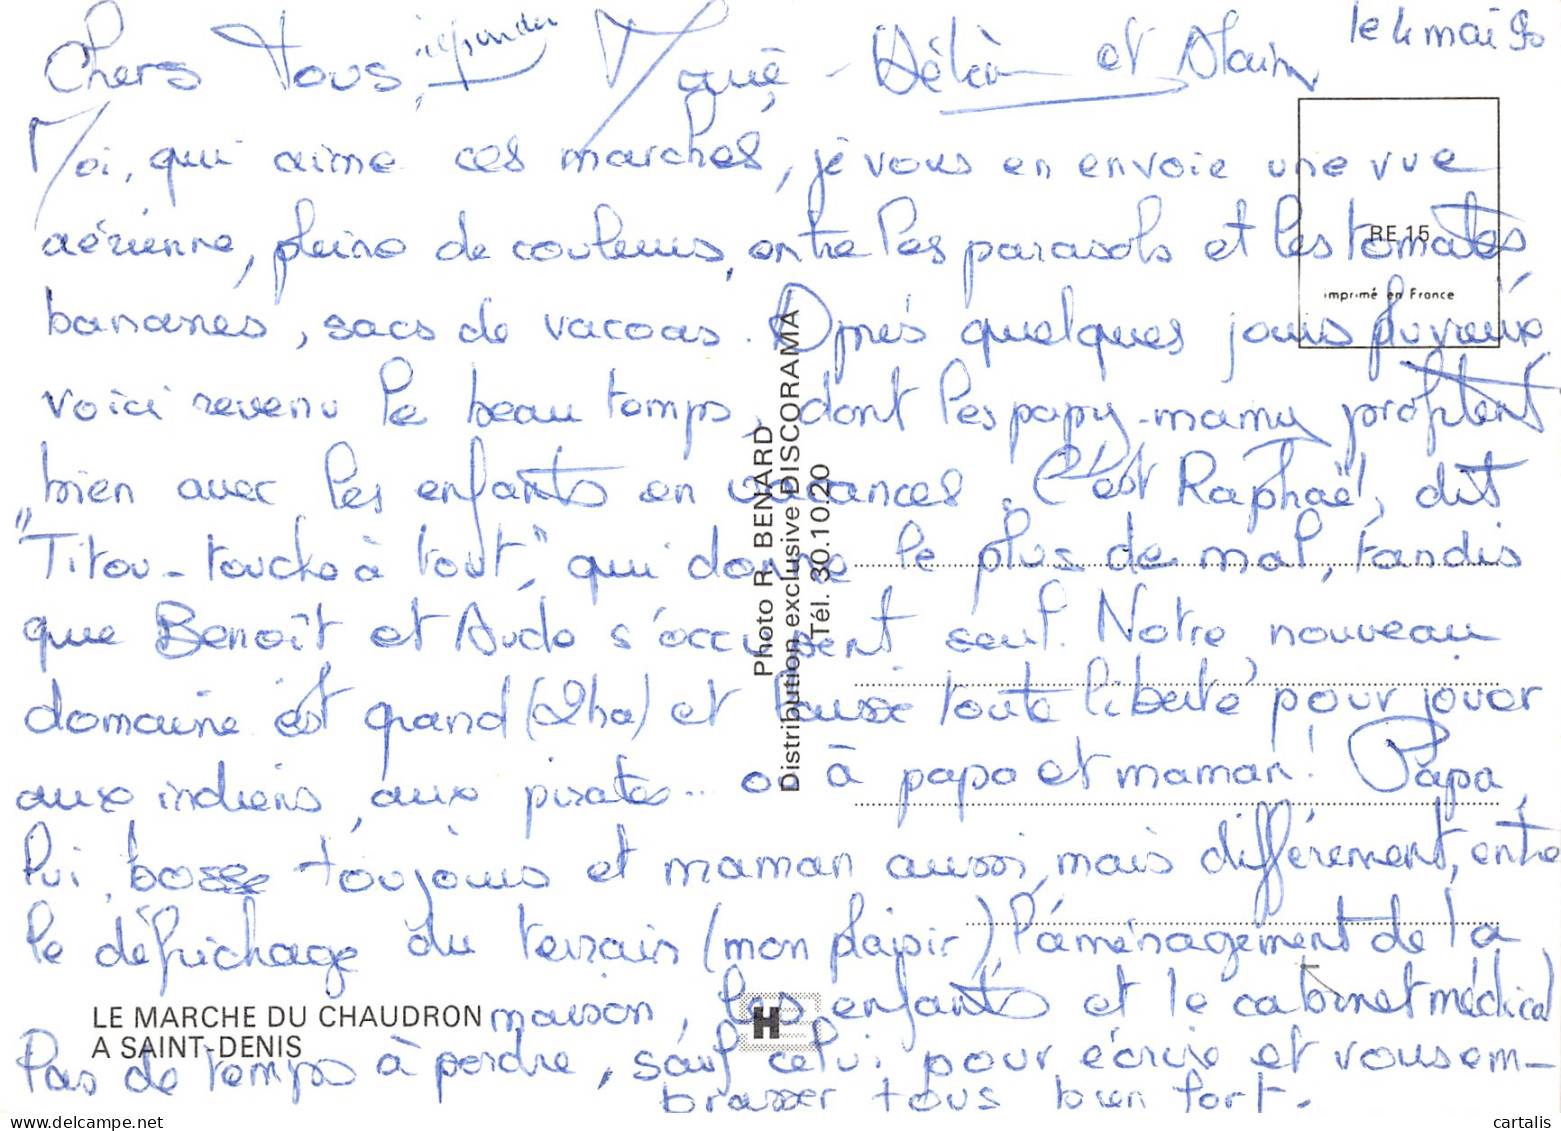 le 4 mai 90
Chers Tous, répondu Maïté - Hélèn et Alain
Moi, qui aime ces marchés, je vous en envoie une vue
aérienne, pleine de couleurs, entre les parasols et les tomates
bananes, sacs de vacoas. Après quelques jours pluvieux
voici revenu le beau temps, dont les papy-mamy profitent
bien avec les enfants en vacances. C'est Raphaël, dit
"Titou-touche à tout", qui donne le plus de mal, tandis
que Benoît et Aude s'occupent seul. Notre nouveau
domaine est grand (2ha) et laisse toute liberté pour jouer
aux indiens, aux pirates... ou à papa et maman! Papa,
lui, bosse toujours et maman aussi, mais différemment, entre
le défrichage du terrain (mon plaisir), l'aménagement de la
maison, les enfants et le cabinet médical
Pas de temps à perdre, sauf celui pour écrire et vous em-
brasser tous bien fort.
RE 15
Imprimé en France
Photo R. BENARD
Distribution exclusive DISCORAMA
Tél. 30.10.20
LE MARCHE DU CHAUDRON
A SAINT-DENIS
H
delcampe.net
cartalis